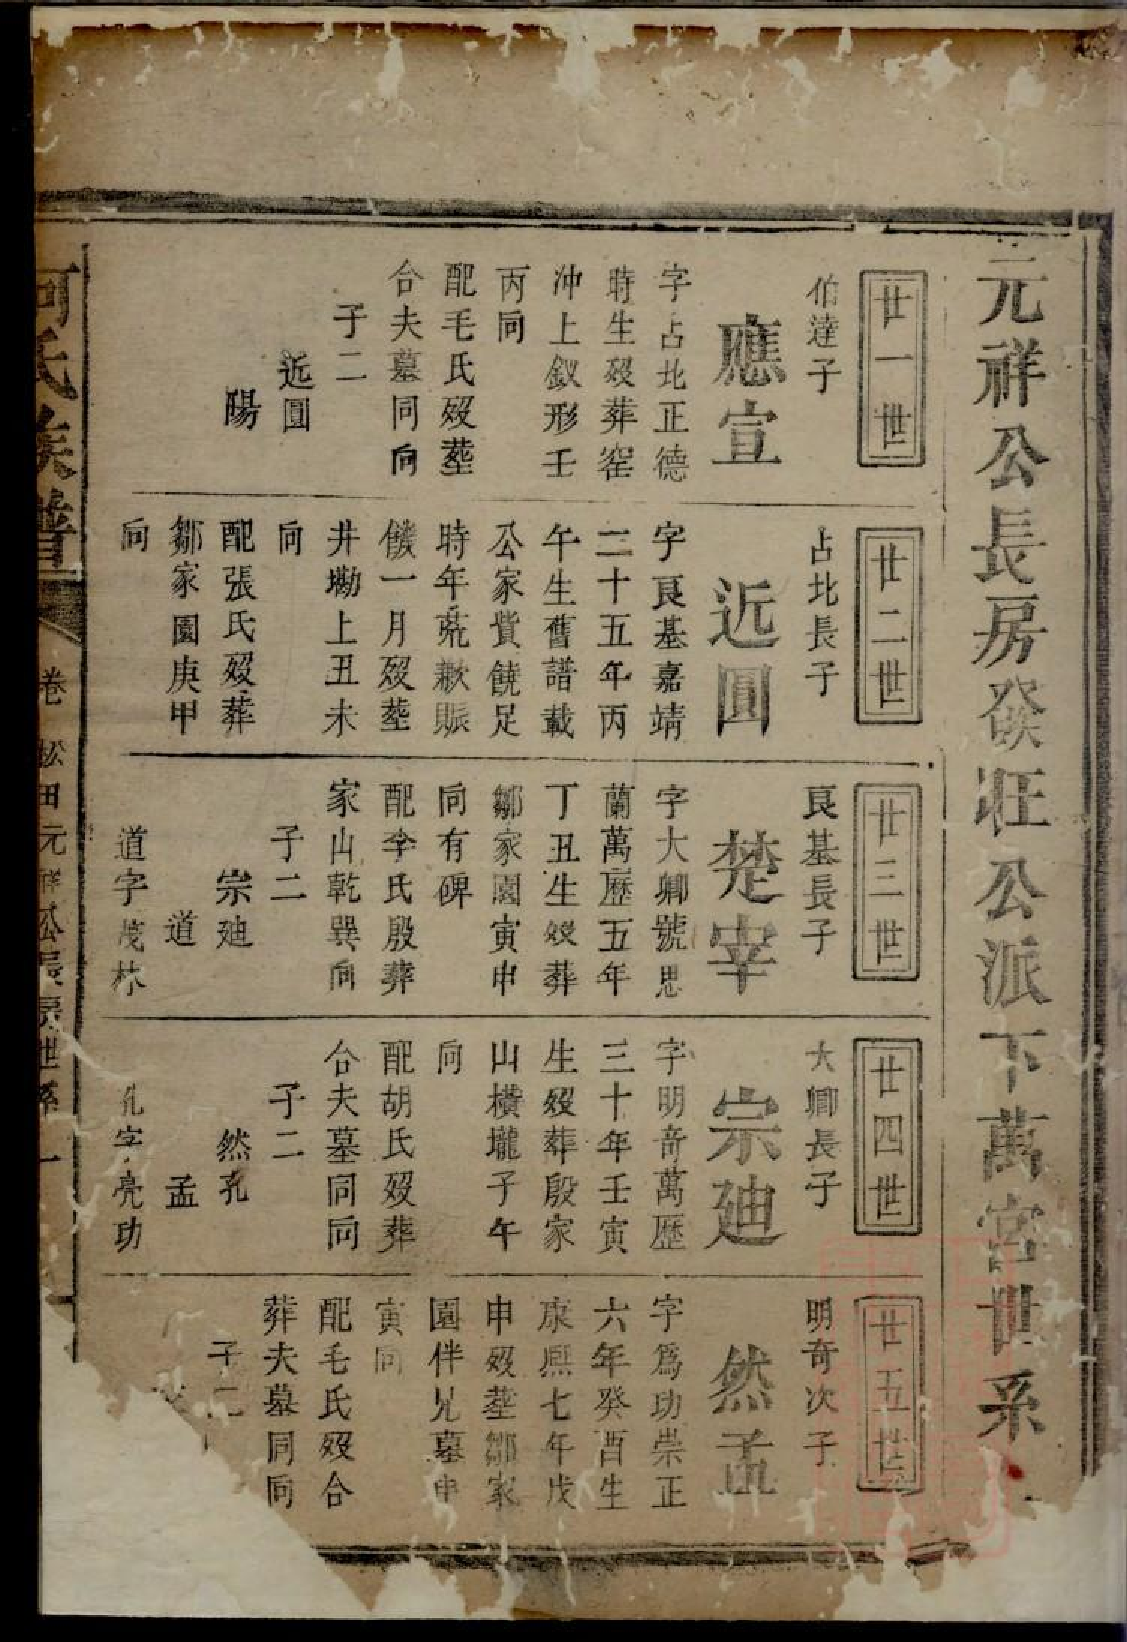 元祥公長房發壯公派下萬宮世系
廿一世
伯達子
應宣
字占北正德
時生歿葬窑
沖上釵形壬
丙向
配毛氏歿塟
合夫墓同向
子二
近圓
陽
廿二世
占北長子
近圓
字良基嘉靖
二十五年丙
午生舊譜載
公家貲饒足
時年荒歉賑
饑一月歿塟
井塘上丑未
向
配張氏歿葬
鄒家園庚甲
向
廿三世
良基長子
楚宰
字大卿號思
蘭萬歷五年
丁丑生歿葬
鄒家園寅申
向有碑
配李氏殷葬
家山乾巽向
子二
宗廸
道
道字茂林
廿四世
大卿長子
宗廸
字明奇萬歷
三十年壬寅
生歿葬殷家
山橫壠子午
向
配胡氏歿葬
合夫墓同向
子二
然孔
孟
孔字亮功
廿五世
明奇次子
然孟
字爲功崇正
六年癸酉生
康熙七年戊
申歿塟鄒家
園伴兄墓申
寅向
配毛氏歿合
葬夫墓同向
子二
何氏族譜
卷 松田元祥公長房世系 一